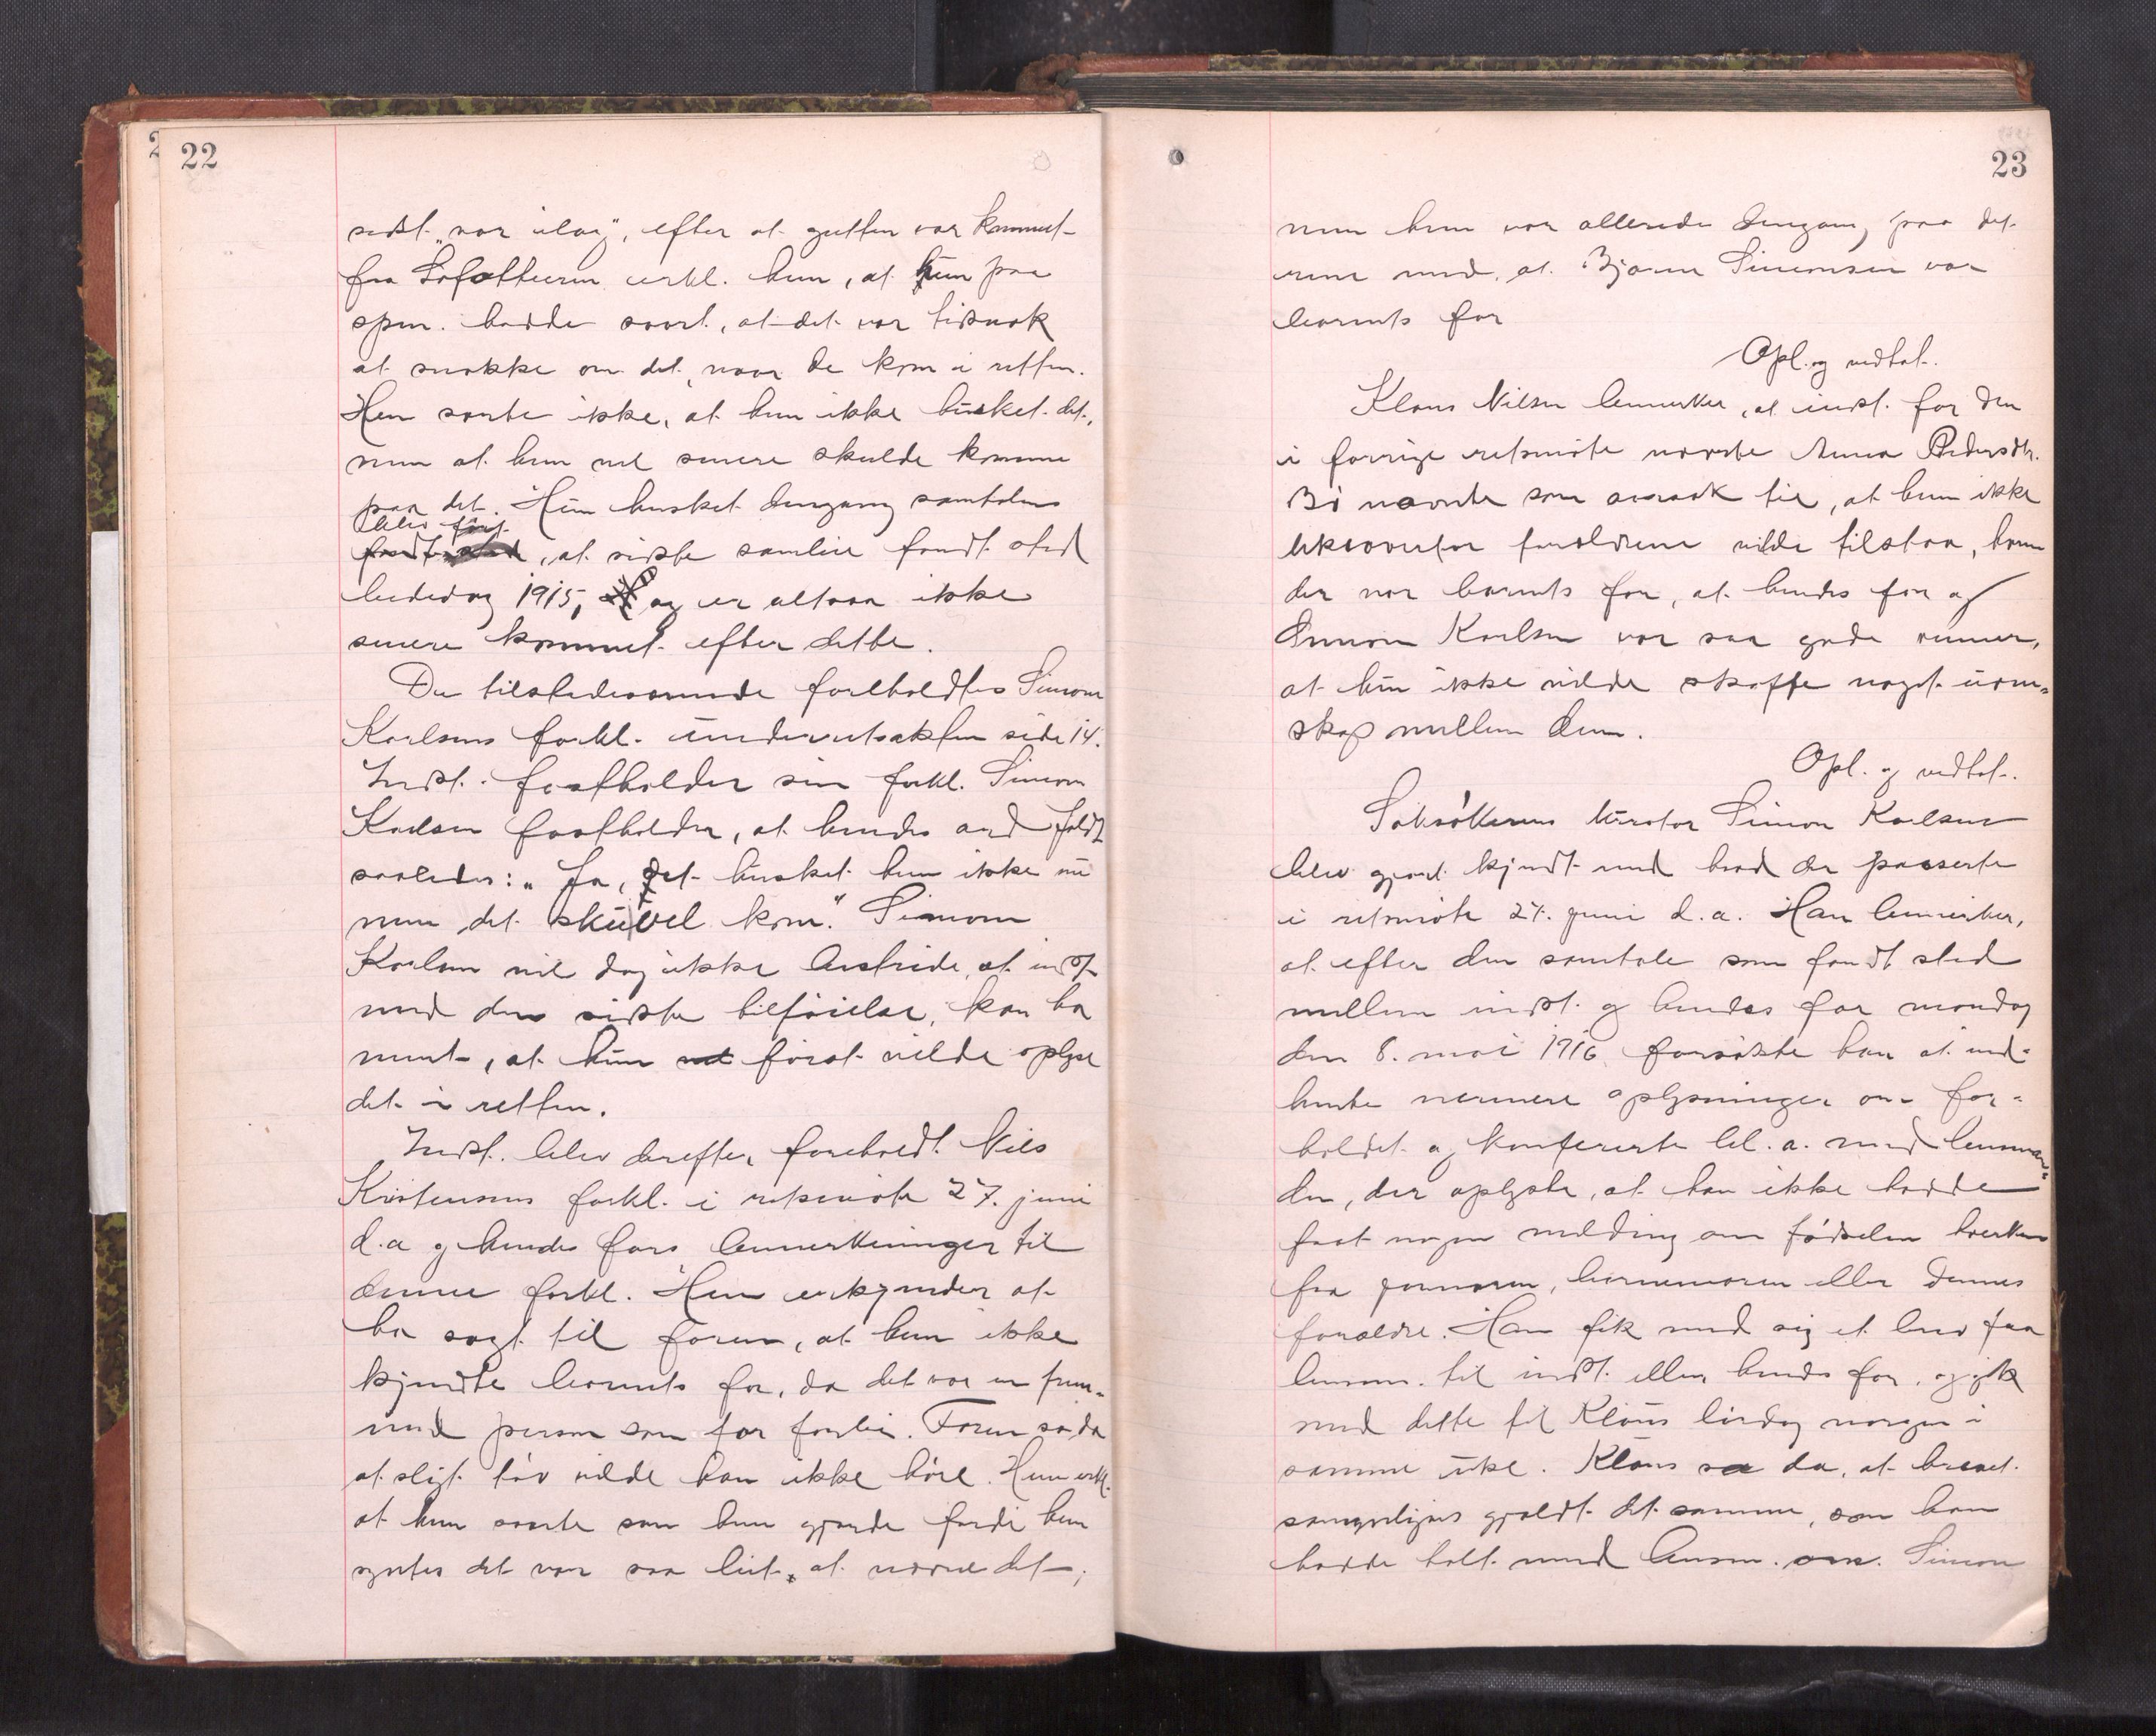 22
sidst „var ilag", efter at gutten var kommet
fra Lofotturen erkl. hun, at hun paa
spm. hadde svart, at det var tidsnok
at snakke om det, naar de kom i retten.
Hun svarte ikke, at hun ikke husket det,
men at hun vel senere skulde komme
paa det. Hun husket dengang samtalen
blev ført
fandt sted, at siste samleie fandt sted
bededag 1915, og er altsaa ikke
senere kommet efter dette.
De tilstedeværende foreholdtes Simon
Karlsens forkl. underretsakten side 14.
Indst. fastholder sin forkl. Simon
Karlsen fastholder, at hendes ord faldt
saaledes: „Ja, det husket hun ikke nu
men det sku vel kom." Simon
Karlsen vil dog ikke bestride, at indst.
med den siste tilføielse, kan ha
ment, at hun vel først vilde oplyse
det i retten.
Indst. blev derefter foreholdt Nils
Kristensens forkl. i retsmøte 27. juni
d.a. og hendes fars bemerkninger til
denne forkl. Hun erkjender at
ha sagt til faren, at hun ikke
kjendte barnets far, da det var en frem-
med person som for forbi. Faren sa da
at sligt tøv vilde han ikke høre. Hun erkl.
at hun svarte som hun gjorde fordi hun
syntes det var saa leit, at nævne det;
23
men hun var allerede dengang paa det
rene med, at Bjarne Simonsen var
barnets far
Opl. og vedtat.
Klaus Nilsen bemerker, at indst. for den
i forrige retsmøte nævnte Anna Pedersdtr.
Bø nævnte som aarsak til, at hun ikke
likeoverfor forældrene vilde tilstaa, hvem
der var barnets far, at hendes far og
Simon Karlsen var saa gode venner,
at hun ikke vilde skaffe noget uven-
skap mellem dem.
Opl. og vedtat.
Saksøkerens kurator Simon Karlsen
blev gjort kjendt med hvad der passerte
i retsmøte 27. juni d.a. Han bemerker,
at efter den samtale som fandt sted
mellem indst. og hendes far mandag
den 8. mai 1916 forsøkte han at ind-
hente nærmere oplysninger om for-
holdet og konfererte bl.a. med lensman-
den, der oplyste, at han ikke hadde
faat nogen melding om fødselen hverken
fra jormoren, barnemoren eller dennes
forældre. Han fik med sig et brev fra
lensm. til indst. eller hendes far, og gik
med dette til Klaus lørdag morgen i
samme uke. Klaus sa da, at brevet
sandsynligvis gjaldt det samme, som han
hadde talt med lensm. om. Simon